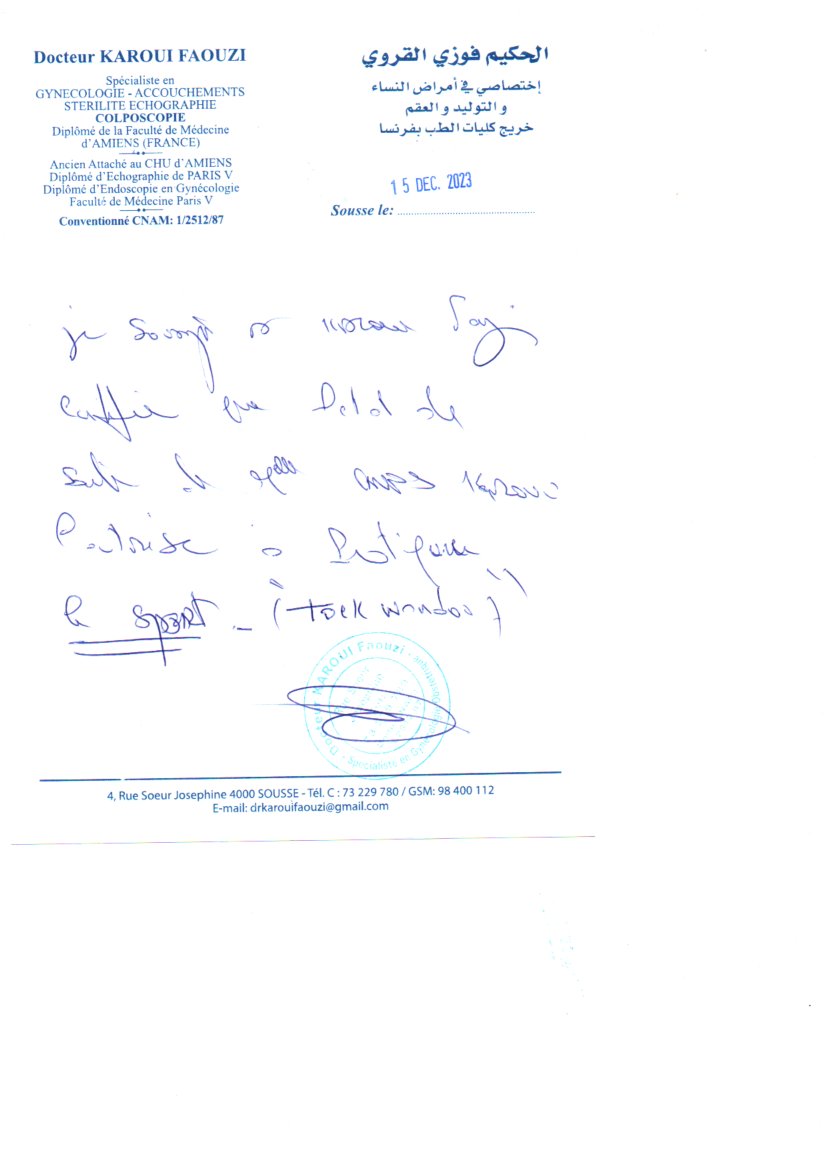 Docteur KAROUI FAOUZI
Spécialiste en
GYNECOLOGIE - ACCOUCHEMENTS
STERILITE ECHOGRAPHIE
COLPOSCOPIE
Diplômé de la Faculté de Médecine
d'AMIENS (FRANCE)
Ancien Attaché au CHU d'AMIENS
Diplômé d'Echographie de PARIS V
Diplômé d'Endoscopie en Gynécologie
Faculté de Médecine Paris V
Conventionné CNAM: 1/2512/87
الحكيم فوزي القروي
إختصاصي في أمراض النساء
و التوليد و العقم
خريج كليات الطب بفرنسا
15 DEC. 2023
Sousse le:
je Dr
certifie que l'etat de
sante de Karoui
l'autorise a pratiquer
le SPORT - (
Docteur KAROUI Faouzi
Spécialiste en
4, Rue Soeur Josephine 4000 SOUSSE - Tél. C : 73 229 780 / GSM: 98 400 112
E-mail: drkarouifaouzi@gmail.com